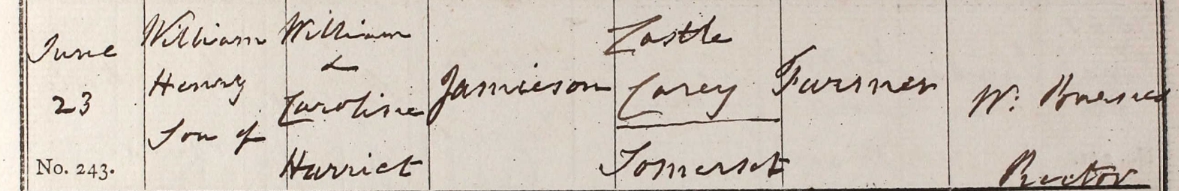 June
23
No. 243.
William
Henry
Son of
William
&
Caroline
Harriet
Jamieson
Castle
Carey
Somerset
Farmer
W:
Rector